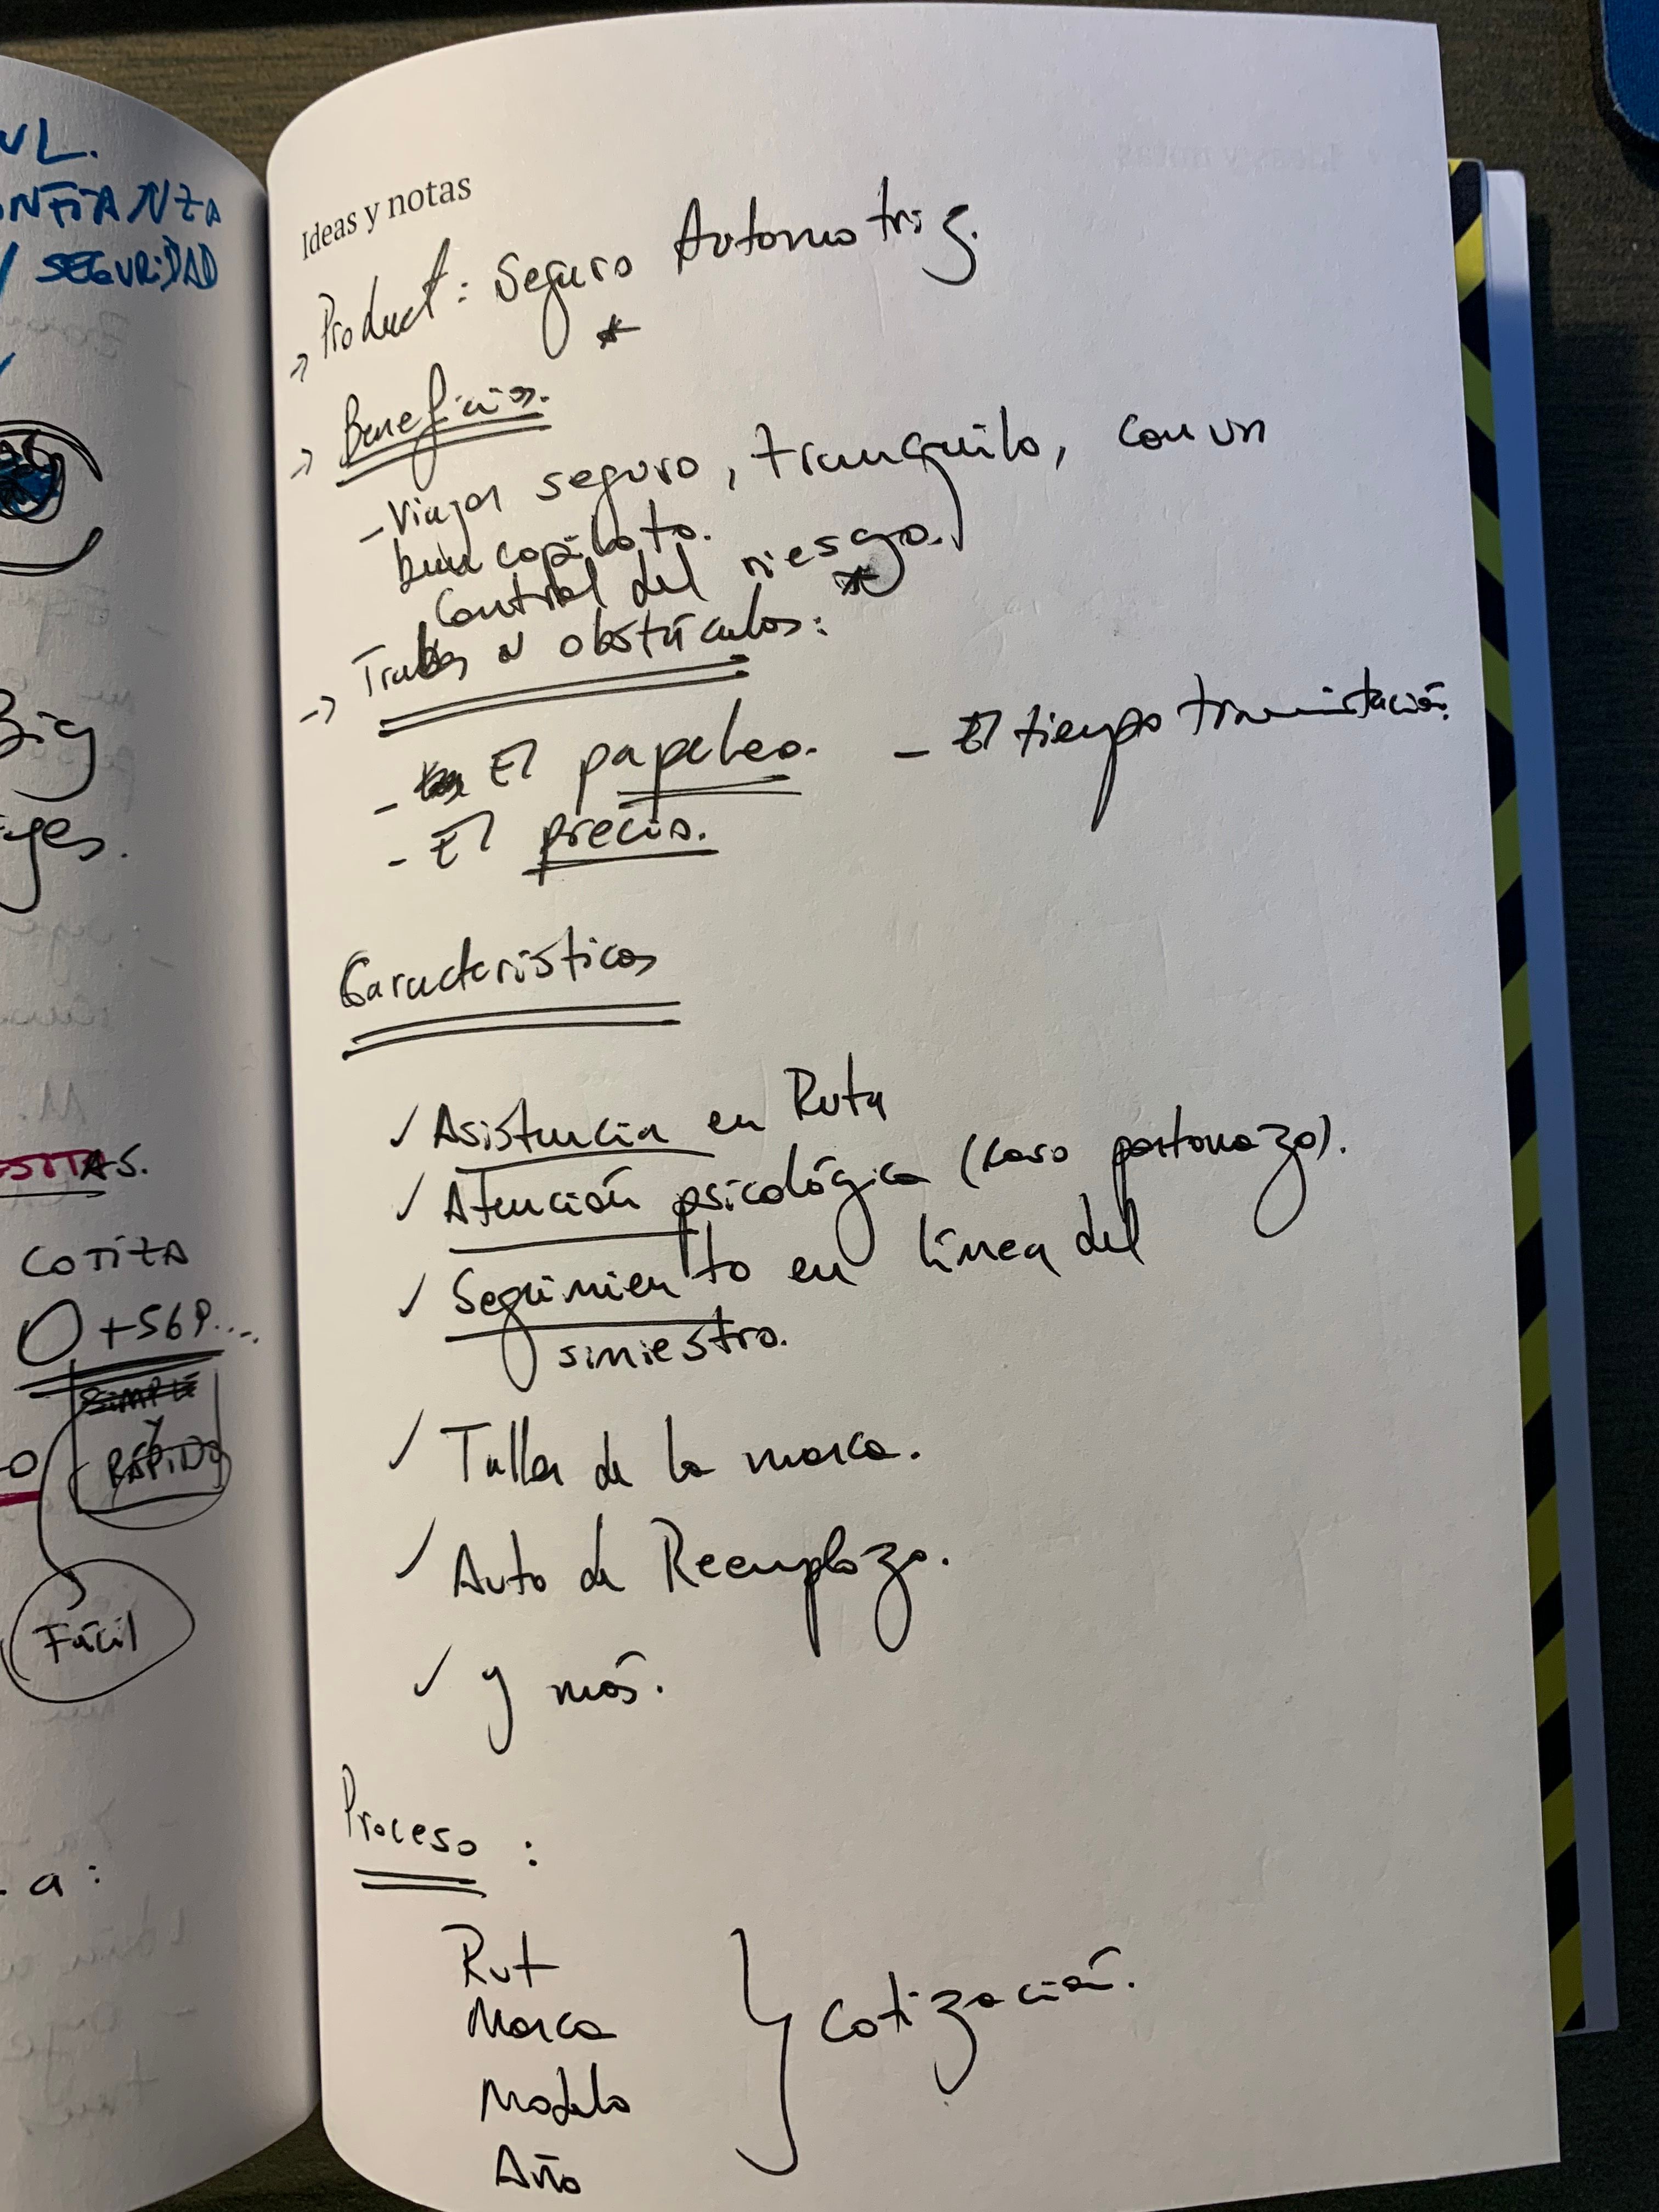 UL.
ONFIANZA
/ SEGURIDAD
Big
yes.
AS.
COTIZA
0 + 56 9....
SIMPLE
Y
RÁPIDO
Fácil
a:
Ideas y notas
→ Product: Seguro Automotriz.
→ Beneficios.
- Viajar seguro, tranquilo, con un
buen copiloto.
Control del riesgo.
→ Trabas u obstáculos:
- El papeleo. - El tiempo tramitación.
- El precio.
Características
✓ Asistencia en Ruta
✓ Atención psicológica (caso portonazo).
✓ Seguimiento en línea del
siniestro.
✓ Taller de la marca.
✓ Auto de Reemplazo.
✓ y más.
Proceso :
Rut
Marca
Modelo
Año
} Cotización.